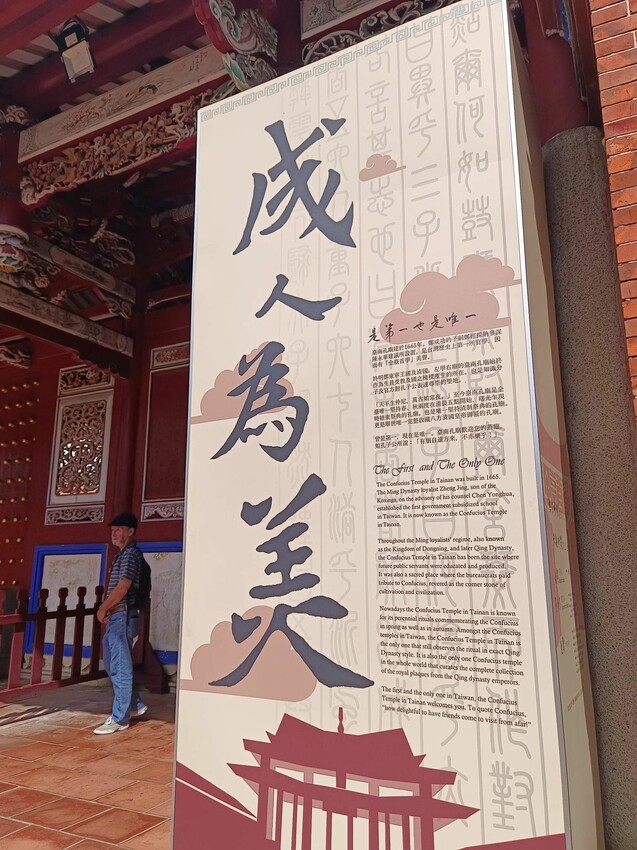 成人為美
是第一也是唯一
臺南孔廟建於1665年，鄭成功的子嗣鄭經採納參謀
陳永華建議所設置，是台灣歷史上第一所官學，因
而有「全臺首學」美譽。
終明鄭東寧王國及清國，左學右廟的臺南孔廟始終
亦為生員受教及國之棟樑產室的所在，也是知識分
子及官方對孔子公祀尊崇的聖地。
「天不生仲尼，萬古如常夜。」至今臺南孔廟是全
臺唯一堅持春、秋兩度在清晨五點開始，曙光乍現
時祭孔的孔廟，也是唯一堅持清制祭典的孔廟，
更是舉世唯一完整收藏八方清國皇帝御匾的孔廟。
曾是第一，現在是唯一。臺南孔廟歡迎您的蒞臨。
如孔子公所說：「有朋自遠方來，不亦樂乎！」
The First and The Only One
The Confucius Temple in Tainan was built in 1665.
The Ming Dynasty loyalist Zheng Jing, son of the
Koxinga, on the advisory of his counsel Chen Yonghua,
established the first government subsidized school
in Taiwan. It is now known as the Confucius Temple
in Tainan.
Throughout the Ming loyalists' regime, also known
as the Kingdom of Dongning, and later Qing Dynasty,
the Confucius Temple in Tainan has been the site where
future public servants were educated and produced.
It was also a sacred place where the bureaucrats paid
tribute to Confucius, revered as the corner stone of
cultivation and civilization.
Nowadays the Confucius Temple in Tainan is known
for its perennial rituals commemorating the Confucius
in spring as well as in autumn. Amongst the Confucius
temples in Taiwan, the Confucius Temple in Tainan is
the only one that still observes the ritual in exact Qing
Dynasty style. It is also the only one Confucius temple
in the whole world that curates the complete collection
of the royal plaques from the Qing dynasty emperors.
The first and the only one in Taiwan, the Confucius
Temple in Tainan welcomes you. To quote Confucius,
"how delightful to have friends come to visit from afar!"